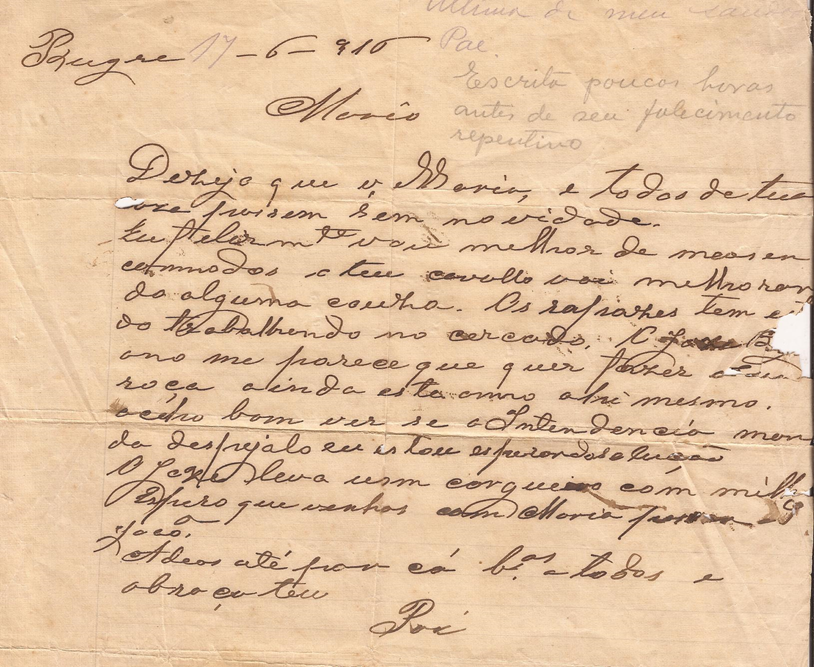 Ultima de meu
Pae
Escrita poucas horas
antes de seu falecimento
repentino
Bugre 17-6-916
Mario
Dezejo que v Maria, e todos de tua
passem sem novidade.
Eu felism.te vou melhor de meos en
commodos o teu cavallo vai melhoran
do alguma couza. Os rapazes tem es
do trabalhando no cercado. O Jose
ano me parece que quer fazer
roça ainda este anno ahi mesmo.
acho bom ver se a Intendencia man
da despejalo eu estou esperando solução
O Jose leva um cargueiro com milho
Espero que venhas com Maria
Adeos até por cá b.as a todos e
abraço teu
Pai